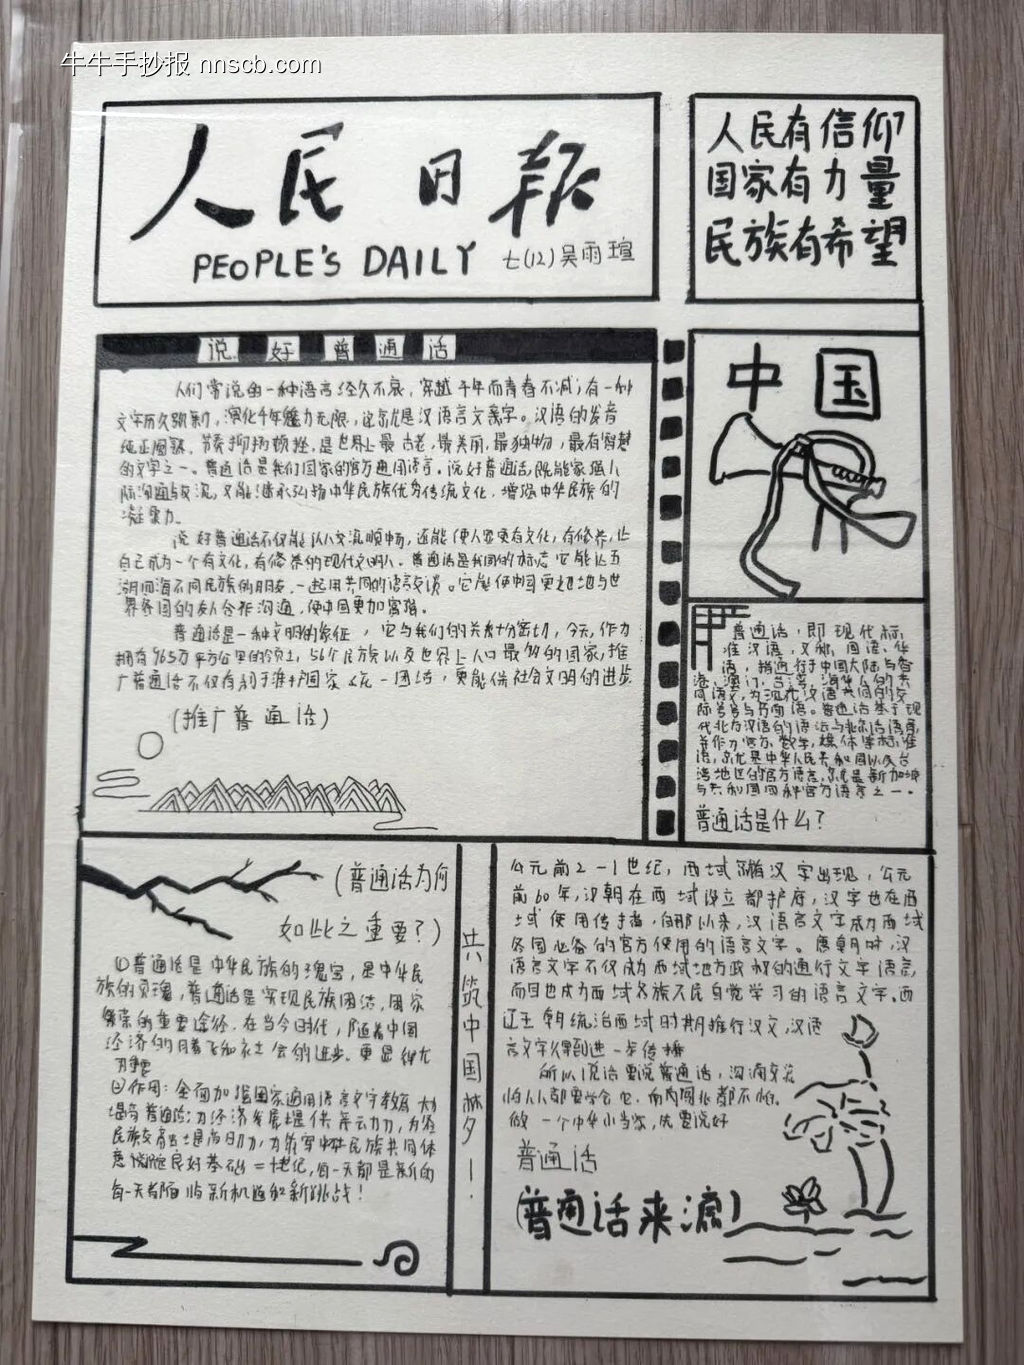 牛牛手抄报 nnscb.com
人民日报
PEOPLE'S DAILY 七(12)吴雨瑄
人民有信仰
国家有力量
民族有希望
说好普通话
人们常说的一种语言经久不衰,穿越千年而青春不减;有一种
文字历久弥新,演化千年魅力无限,这就是汉语言文字。汉语的发音
纯正圆润、节奏抑扬顿挫,是世界上最古老,最美丽,最独特,最有智慧
的文字之一。普通话是我们国家的官方通用语言。说好普通话,既能家强人
际沟通与交流,又能继承弘扬中华民族优秀传统文化,增强中华民族的
凝聚力。
说好普通话不仅能认人交流顺畅,还能使人变更有文化,有修养,让
自己成为一个有文化,有修养的现代文明人。普通话是我国的标志它能让五
湖四海不同民族的朋友,一起用共同的语言交谈。它能使中国更好地与世
界各国的友人合作沟通,使中国更加富强。
普通话是一种文明的象征,它与我们的关系十分密切,今天,作为
拥有965万平方公里的领土,56个民族以及世界上人口最多的国家,推
广普通话不仅有利于维护国家统一团结,更能促社会文明的进步
(推广普通话)
中国
普通话,即现代标
准汉语,又称,国语、华
语,指通行于中国大陆与香
港、澳门、台湾、海外华人的共
同语文,为沉不汉语共同的交
际等号与方面语。普通话基于现
代北方汉语的语法与北京话语音,
并作为官方、教学,媒体等标准
语,就是中华人民共和国以及台
湾地区的官方语言,就是新加坡
与共和国四种官方语言之一。
普通话是什么?
(普通话为何
如此之重要?)
①普通话是中华民族的瑰宝,是中华民
族的灵魂,普通话是实现民族团结,国家
繁荣的重要途径.在当今时代,随着中国
经济的腾飞和社会的进步.更显得尤
为重要
②作用:全面加强国家通用语言文字教育 大力
提高普通话;为经济发展提供 动力,为各
民族交流提高助力,为筑牢中华民族共同体
意识 良好基础 二十世纪,每一天都是新的
每一天都面临新机遇和新挑战!
共筑中国梦一.
公元前2-1世纪,西域 随汉字出现,公元
前60年,汉朝在西域设立都护府,汉字也在西
域使用传播,自那以来,汉语言文字成为西域
各国必备的官方使用的语言文字。唐朝时,汉
语言文字不仅成为西域地方政权的通行文字语言,
而且也成为西域各族人民自觉学习的语言文字.西
辽王朝统治西域时期推行汉文,汉语
言文字得到进一步传播
所以说话要说普通话,沟通交流
怕人人都要学会它.东西南北都不怕.
做一个中华小当家,先要说好
普通话
(普通话来源)